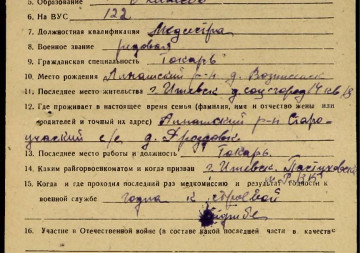 5. Образование 6 классов
6. На ВУС 122
7. Должностная квалификация Медсестра
8. Военное звание рядовая
9. Гражданская специальность Токарь
10. Место рождения Алнашский р-н д.
11. Последнее место жительства г. Ижевск д. соцгород
12. Где проживает в настоящее время семья (фамилия, имя и отчество жены или
родителей и точный их адрес) Алнашский р-н Старо-
с/с д.
13. Последнее место работы и должность Токарь.
14. Каким райгорвоенкоматом и когда призван г. Ижевск. Пастуховск
15. Когда и где проходил последний раз медкомиссию и результат годности к
военной службе годна к строевой
службе
16. Участие в Отечественной войне (в составе какой последней части в качестве